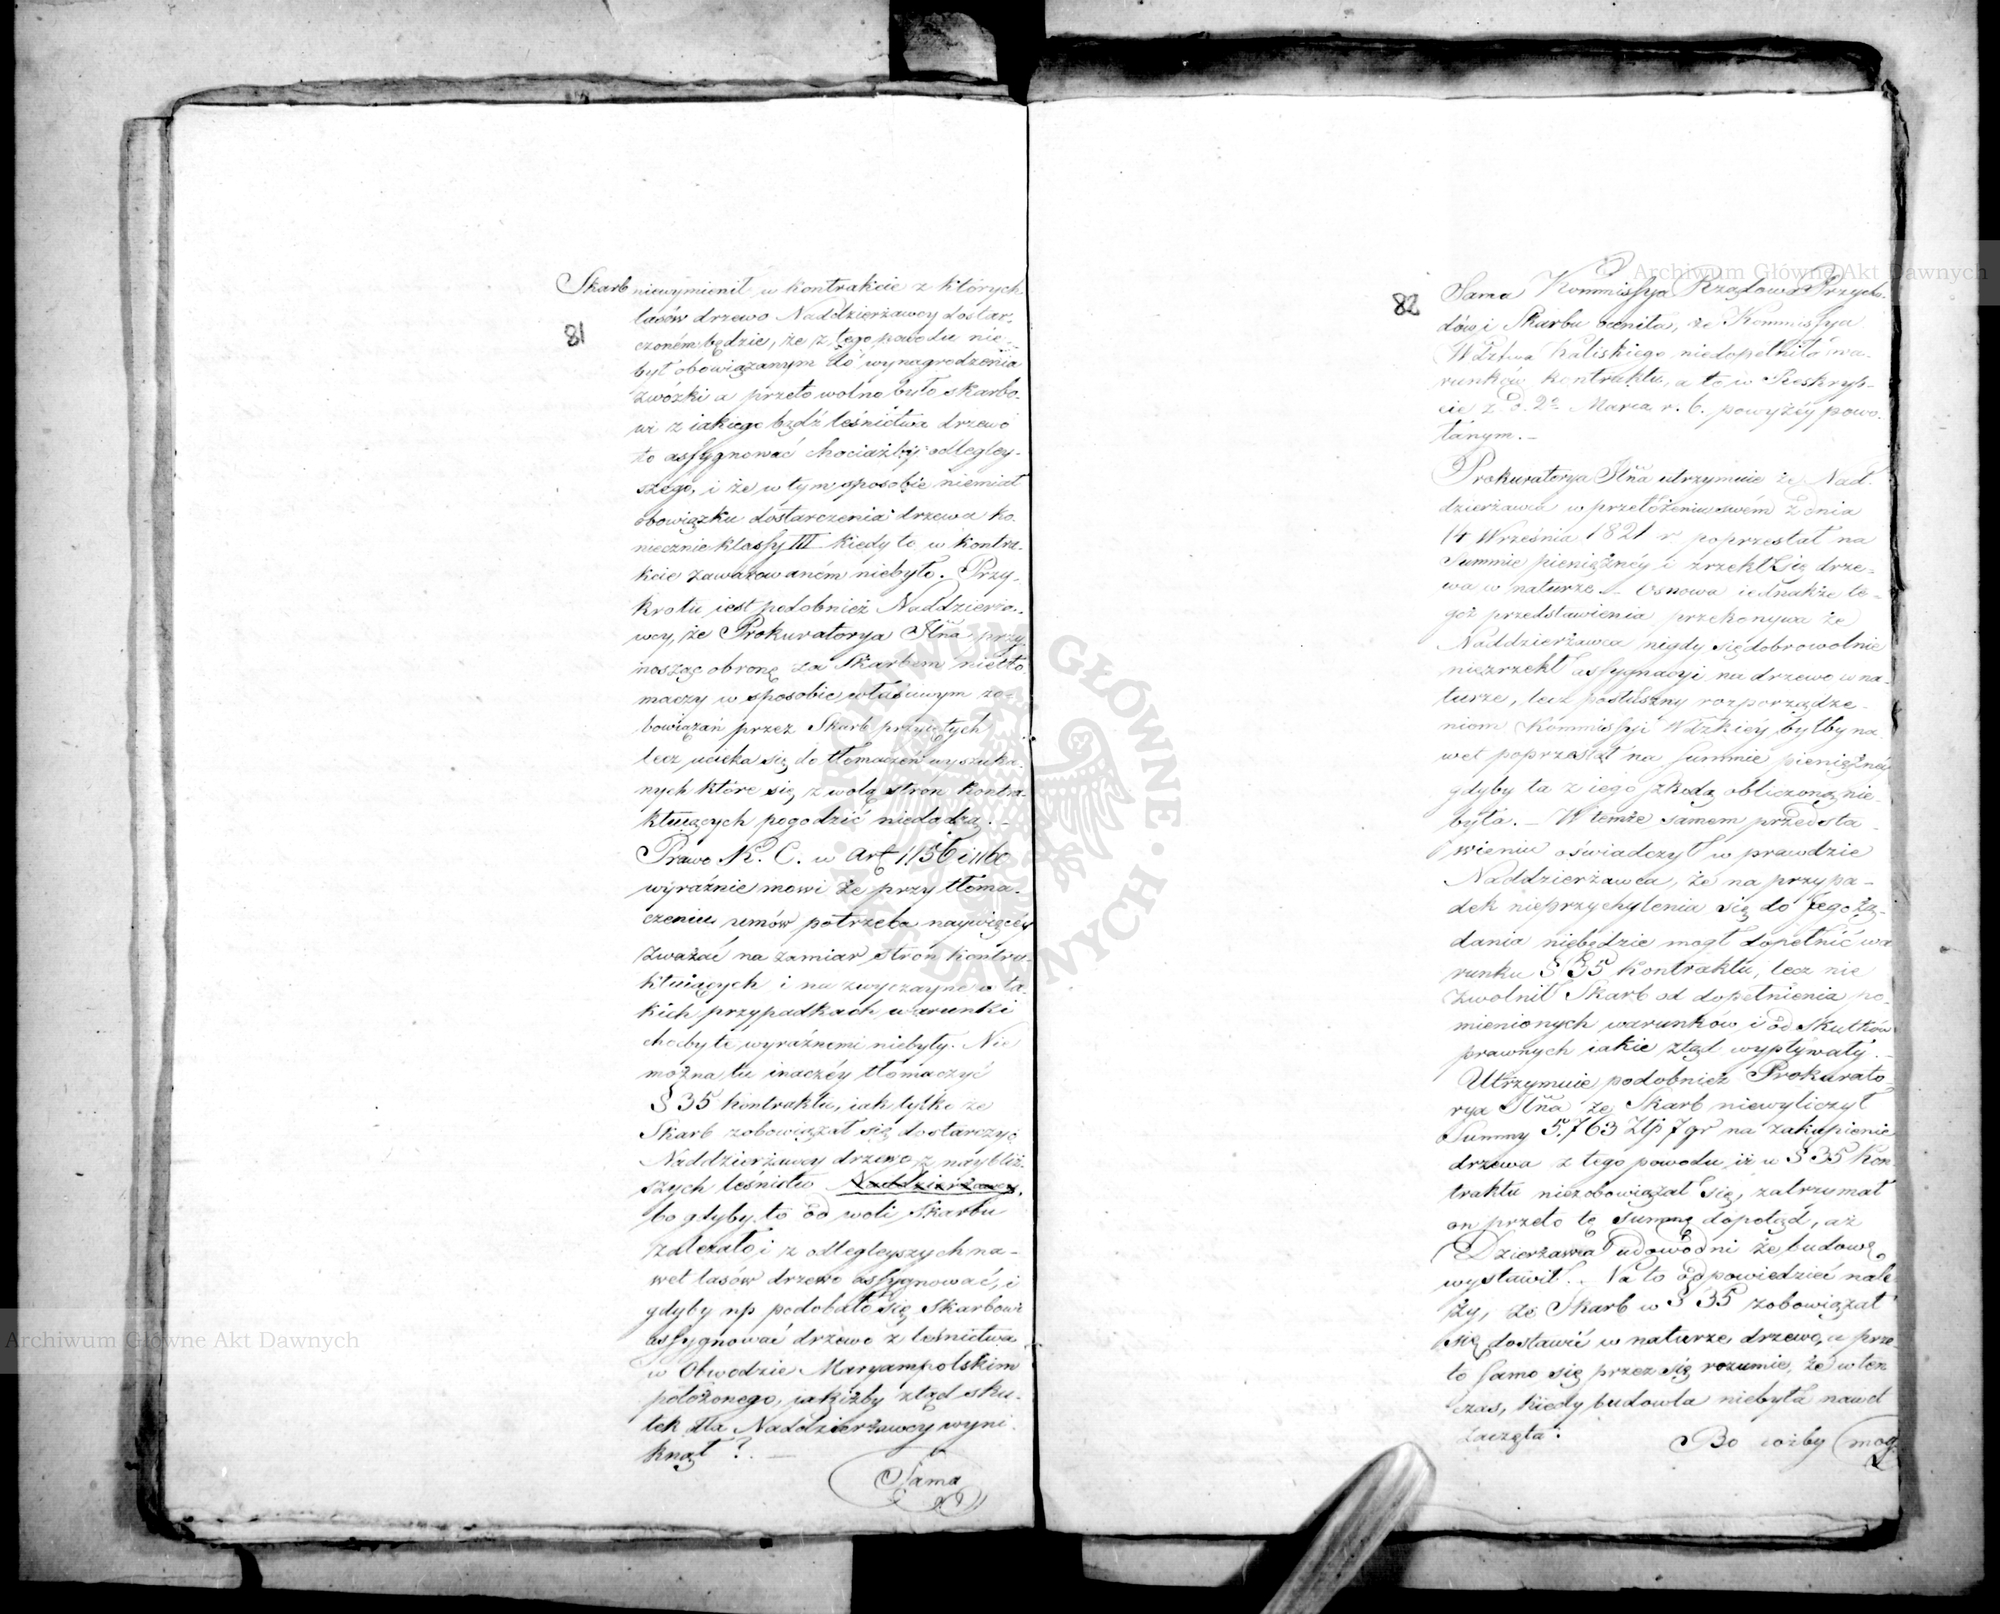 Skarb niewymienił w kontrakcie z których
lasów drzewo Naddzierżawcy dostar-
81
czoném będzie, że z tego powodu nie-
był obowiązanym do wynagrodzenia
zwózki a przeto wolno było skarbo-
wi z iakiego bądź leśnictwa drzewo
to assygnować chociażby odlegley-
szego, i że w tym sposobie niemiał
obowiązku dostarczenia drzewa ko-
niecznie klassy III kiedy to w kontra-
kcie zawarowaném niebyło. Przy-
kro tu iest podobnież Naddzierża-
wcy, że Prokuratorya Jlña przy-
nosząc obronę za Skarbem nietło-
maczy w sposobie właściwym zo-
bowiązań przez Skarb przyiętych
lecz ucieka się do tłomaczeń wyszuka-
nych które się z wolą stron kontra-
ktuiących pogodzić niedadzą. –
Prawo K. C. w art 1156 i 1160
wyraźnie mowi że przy tłoma-
czeniu umów potrzeba naywięcéy
zważać na zamiar stron kontra-
ktuiących i na zwyczayne w ta-
kich przypadkach warunki
choćby te wyraźnemi niebyły. Nie
można tu inaczéy tłomaczyć
§ 35 kontraktu, iak tylko że
Skarb zobowiązał się dostarczyć
Naddzierżawcy drzewo z naybliż-
szych leśnictw Naddzierżawcy,
bo gdyby to od woli Skarbu
zależało i z odlegleyszych na-
wet lasów drzewo assygnować, i
gdyby np podobało się Skarbowi
assygnować drzewo z leśnictwa
w Obwodzie Maryampolskim
położonego, iakiżby ztąd sku-
tek dla Naddzierżawcy wyni-
knął? –
Sama
82
Sama Kommissya Rządowa Przycho-
dów i Skarbu oceniła, że Kommissya
Wdztwa Kaliskiego niedopełniła wa-
runków kontraktu, a to w Reskryp-
cie z d. 2º Marca r. b. powyżéy powo-
łanym. –
Prokuratorya Jlña utrzymuie że Nad-
dzierżawca w przełożeniu swém z dnia
14 Września 1821 r poprzestał na
Summie pieniężnéy i zrzekł się drze-
wa w naturze. – Osnowa iednakże te-
goż przedstawienia przekonywa że
Naddzierżawca nigdy się dobrowolnie
niezrzekł assygnacyi na drzewo w na-
turze, lecz posłuszny rozporządze-
niom Kommissyi Wdzkiéy byłby na-
wet poprzestał na Summie pieniężnéy
gdyby ta z iego szkodą obliczoną nie-
była. – W temże samem przedsta-
wieniu oświadczył w prawdzie
Naddzierżawca, że na przypa-
dek nieprzychylenia się do Jego żą-
dania niebędzie mogł dopełnić wa-
runku § 35 kontraktu, lecz nie
zwolnił Skarb od dopełnienia po-
mienionych warunków i od skutków
prawnych iakie ztąd wypływały. –
Utrzymuie podobnież Prokurato-
rya Jlña że Skarb niewyliczył
Summy 5,763 Złp 7 gr na zakupienie
drzewa z tego powodu iż w § 35 Kon-
traktu niezobowiązał się, zatrzymał
on przeto tę summę dopotąd, aż
Dzierżawca udowodni że budowę
wystawił. – Na to odpowiedzieć nale-
ży, że Skarb w § 35 zobowiązał
się dostawić w naturze drzewo, a prze-
to samo się przez się rozumie, że wten-
czas, kiedy budowla niebyła nawet
zaczęta.
Bo iożby mog-
Archiwum Główne Akt Dawnych
Archiwum Główne Akt Dawnych
ARCHIWUM GŁÓWNE · AKT DAWNYCH ·